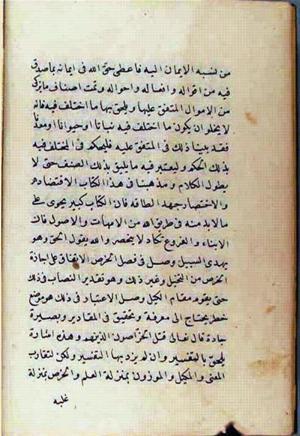 من نسبه الايمان اليه فاعطى حق الله في ايمانه بما صدق
فيه من اقواله وافعاله واحواله وتمت اصناف ما يزكى
من الاموال المتفق عليها ويلحق بها ما اختلف فيه فانه
لا يخلو ان يكون ما اختلف فيه نباتا او حيوانا او معدنا
فقد بينا ذلك في المتفق عليه فليحكم في المختلف فيه
بذلك الحكم وليعتبر فيه ما يليق بذلك الصنف حتى لا
يطول الكلام ومذهبنا في هذا الكتاب الاقتصاد
والاختصار جهد الطاقة فان الكتاب كبير يحوى على
ما لا بد منه في طريق الله من الامهات والاصول فان
الابناء والفروع تكاد لا تنحصر والله يقول الحق وهو
يهدى السبيل وصل في فصل الخرص الاتفاق على اجازة
الخرص من النخيل وغير ذلك وهو تقدير النصاب في ذلك
حتى يقوم مقام الكيل وصل الاعتبار في ذلك هو موضع
خطر يحتاج الى معرفة وتحقيق في المقادير وبصيرة
حادة قال تعالى قتل الخراصون الذين هم وهذه اشارة
يلحق بالتفسير وان لم يرد بها التفسير ولكن لتقارب
المعنى والمكيل والموزون بمنزلة العلم والخرص بمنزلة
غلبة